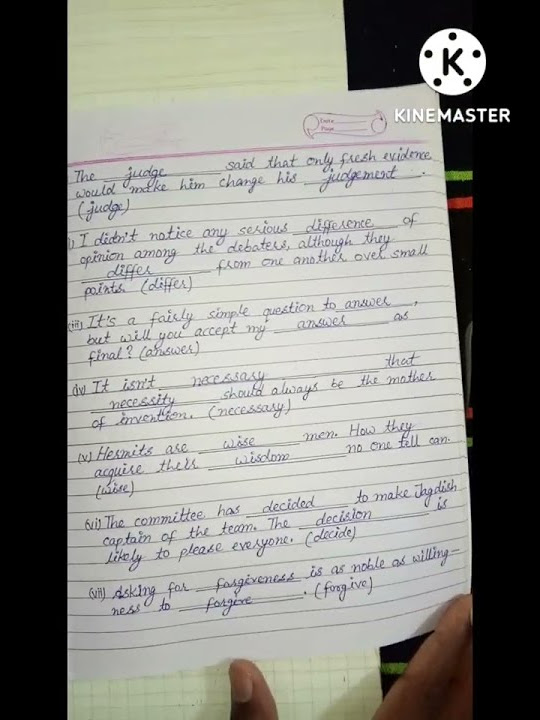 K
KINEMASTER
Date
Page
The judge said that only fresh evidence
would make him change his judgement.
(judge)
) I didn't notice any serious difference of
opinion among the debaters, although they
differ from one another over small
points (differ)
(iii) It's a fairly simple question to answer,
but will you accept my answer as
final? (answer)
(iv) It isn't necessary that
necessity should always be the mother
of invention. (necessary)
(v) Hermits are wise men. How they
acquire their wisdom no one tell can.
(wise)
(vi) The committee has decided to make Jagdish
captain of the team. The decision is
likely to please everyone. (decide)
(vii) Asking for forgiveness is as noble as willing-
ness to forgive. (forgive)